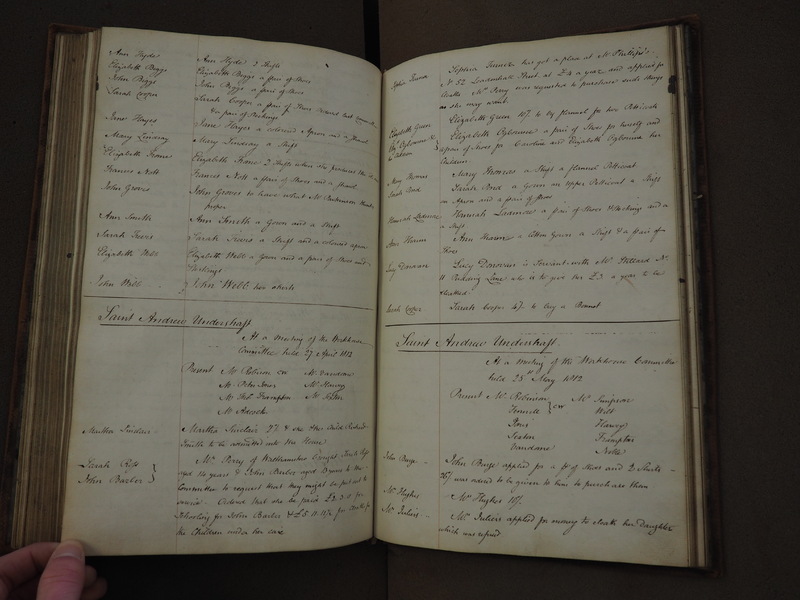 Ann Hyde Ann Hyde 2 Shifts
Elizabeth Boggs Elizabeth Boggs a pair of Shoes
John Boggs John Boggs a pair of Shoes
Sarah Cooper Sarah Cooper a pair of Shoes
pair of Stockings
Jane Hayes Jane Hayes a colored Apron and a
Mary Lindsay Mary Lindsay a Shift
Elizabeth Elizabeth 2 Shifts when she produces the
Frances Nott Frances Nott a pair of Shoes and a
John Groves John Groves to have what Mr
proper
Ann Smith Ann Smith a Gown and a Shift
Sarah Sarah a Shift and a colored apron
Elizabeth Webb Elizabeth Webb a Gown and a pair of Shoes and
Stockings
John Webb John Webb two shirts
Saint Andrew Undershaft
At a meeting of the Workhouse
Committee held 27 April 1812
Present Mr Robinson CW Mr Vandome
Mr Peter Jones Mr Harvey
Mr Thos Frampton Mr
Mr
Martha Sinclair Martha Sinclair 27 & one the Child
Smith to be admitted into the House
Sarah Ross Mr Perry of Walthamstow brought Sarah Ross
John Barber aged 14 years & John Barber aged years to the
Committee to request that they might be put out to
service Ordered that she be paid £2.3.0 for
Schooling for John Barber & £5.11.11½ for Cloaths for
the Children under her care
Sophia Turner Sophia Turner has got a place at Mr Phillips's
No 52 Leadenhall Street at £4 a year and applied for
Cloaths Mr Perry was requested to purchase such things
as she may want
Elizabeth Green Elizabeth Green 10/. to buy flannel for her Petticoats
Elizabeth Ogbourne a pair of Shoes for herself and
a pair of Shoes for Caroline and Elizabeth Ogbourne her
Children
Mary Thomas Mary Thomas a Shift a flannel Petticoat
Sarah Bond Sarah Bond a Gown an upper Petticoat a Shift
an Apron and a pair of Shoes
Hannah Hannah a pair of Shoes & Stockings and a
a Shift
Ann Ann a Cotton Gown a Shift & a pair of
Shoes
Lucy Donovan Lucy Donovan is Servant with Mr Hillard No
11 Pudding Lane who is to give her £3 a year to be
cloathed
Sarah Cooper Sarah Cooper 4/. to buy a Bonnet
Saint Andrew Undershaft
At a meeting of the Workhouse Committee
held 25th May 1812
Present Mr Robinson Mr Simpson
Fennell CW Wilt
Jones Harvey
Sexton Frampton
Vandome Noble
John Burge John Burge applied for a pr of Shoes and 2 Shirts
26/. was ordered to be given to him to purchase them
Mr Hughes Mr Hughes 10/.
Mr Juliers Mr Juliers applied for money to cloath her Daughter
which was refused